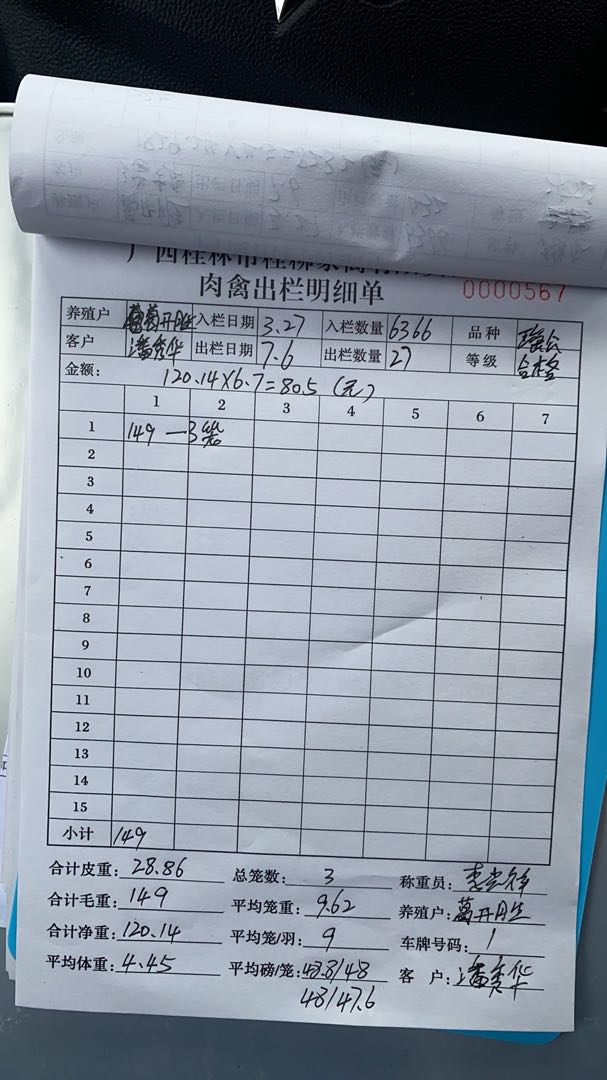 肉禽出栏明细单
0000567
养殖户 葛开胜 入栏日期 3.27 入栏数量 6366 品种
客户 潘秀华 出栏日期 7.6 出栏数量 27 等级 合格
金额: 120.14×6.7=805(元)
1 2 3 4 5 6 7
1 149 —3笼
2
3
4
5
6
7
8
9
10
11
12
13
14
15
小计 149
合计皮重: 28.86 总笼数: 3 称重员:
合计毛重: 149 平均笼重: 9.62 养殖户: 葛开胜
合计净重: 120.14 平均笼/羽: 9 车牌号码: 1
平均体重: 4.45 平均磅/笼: 48.8/48 客户: 潘秀华
48/47.6